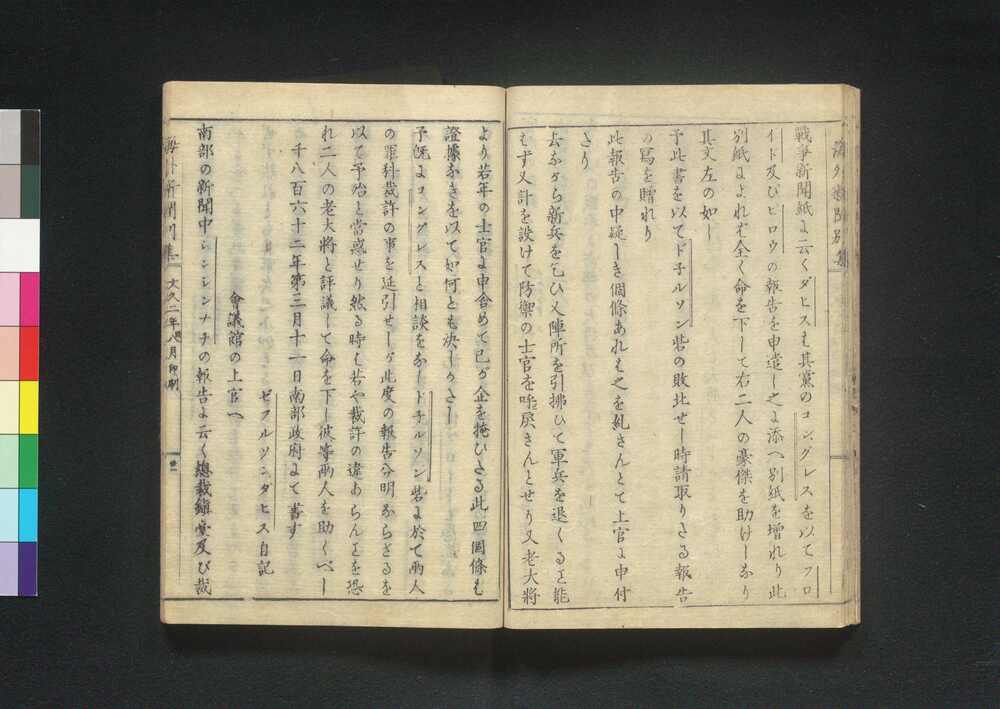 戰爭新聞紙ニ云くダヒスも其黨のコングレスを以てフロ
イド及びピロウの報告を申遣し之よ添へ別紙を増れり此
別紙よよれバ全く命を下して右二人の豪傑を助けしなり
其文左の如し
予此書を以てドチルソン砦の敗北せし時請取りたる報告
の寫を贈れり
此報告の中疑しき個條あれも之を糺さんとて上官よ申付
たり
去ながら新兵を乞ひ又陣所を引拂ひて軍兵を退くると能
もず又計を設けて防禦の士官を呼戻さんとせり又老大將
より若年の士官よ申含めて己が企を掩ひたる此四個條も
證據なきを以て如何とも決しがたし
予既よコングレスと相談をなしドチルソン砦よ於て兩人
の罪科裁許の事を延引せしが此度の報告分明ならざるを
以て予殆と當惑せり然る時も若や裁許の違あらんとを恐
れ二人の老大將と評議して命を下し彼等兩人を助くべし
千八百六十二年第三月十一日南部政府よて書す
ゼフルソン、ダヒス自記
會議館の上官へ
南部の新聞中シンシンナチの報告よ云く總裁鎭臺及び裁
海外新聞別集
文久二年八月印刷